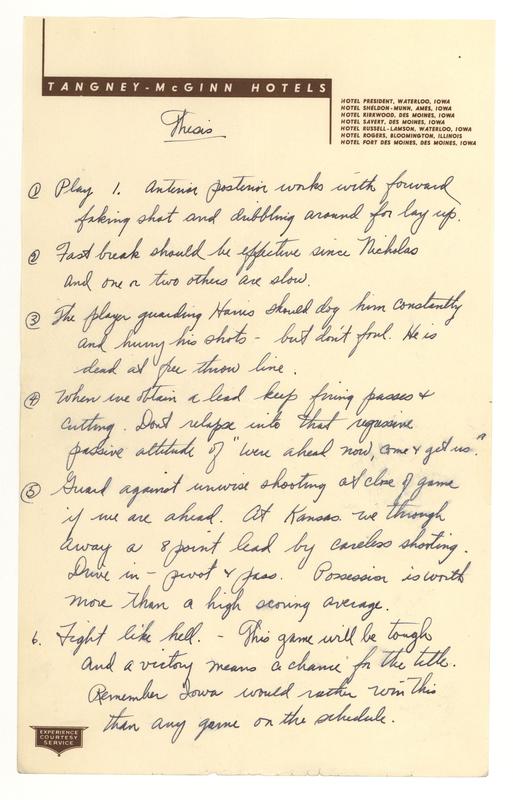 TANGNEY-McGINN HOTELS
HOTEL PRESIDENT, WATERLOO, IOWA
HOTEL SHELDON-MUNN, AMES, IOWA
HOTEL KIRKWOOD, DES MOINES, IOWA
HOTEL SAVERY, DES MOINES, IOWA
HOTEL RUSSELL-LAMSON, WATERLOO, IOWA
HOTEL ROGERS, BLOOMINGTON, ILLINOIS
HOTEL FORT DES MOINES, DES MOINES, IOWA
Thesis
① Play 1. Anterior posterior works with forward
faking shot and dribbling around for lay up.
② Fast break should be effective since Nicholas
and one or two others are slow.
③ The player guarding Harris should dog him constantly
and hurry his shots - but don't foul. He is
dead at free throw line.
④ When we obtain a lead keep firing passes &
cutting. Dont relapse into that
passive attitude of "were ahead now, come & get us."
⑤ Guard against unwise shooting at close of game
if we are ahead. At Kansas we through
away a 8 point lead by careless shooting.
Drive in - pivot & pass. Possession is worth
more than a high scoring average.
6. Fight like hell. - This game will be tough
and a victory means a chance for the title.
Remember Iowa would rather win this
than any game on the schedule.
EXPERIENCE
COURTESY
SERVICE